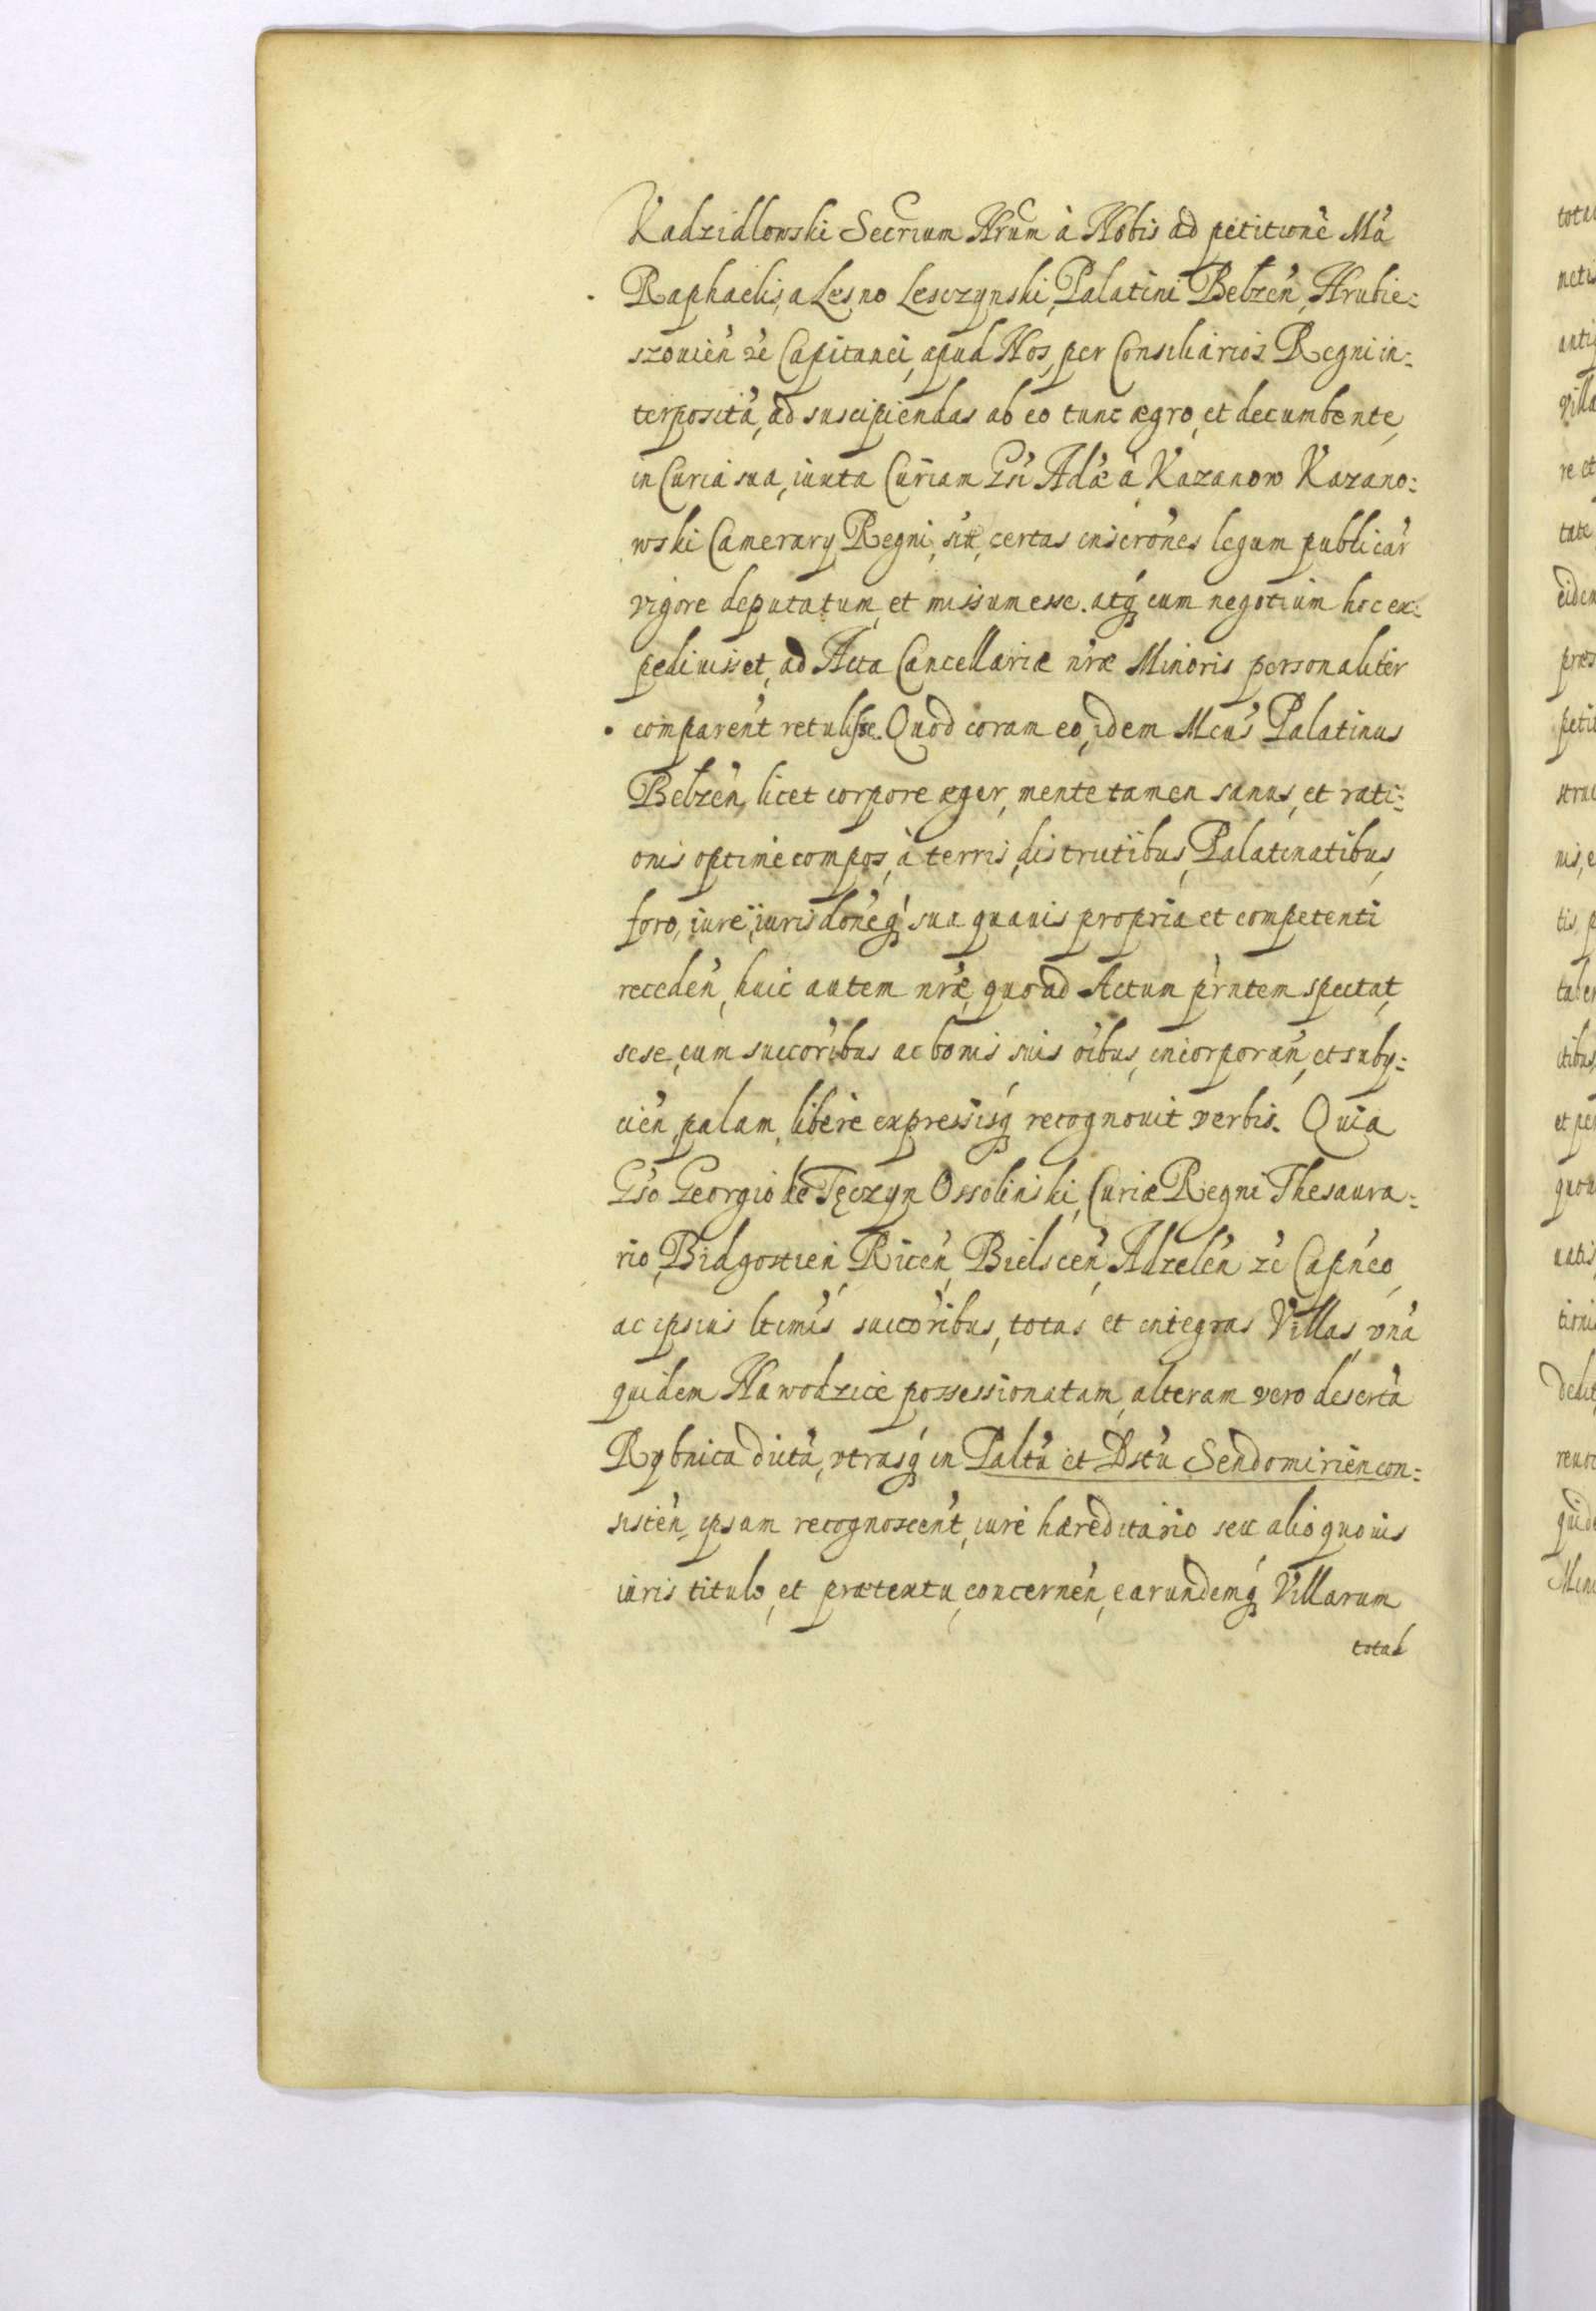 Kadzidlowski Secrium Nrum à Nobis ad petitionē Mā
Raphaelis, a Lesno Lesczynski, Palatini Belzeń, Hrubie=
szouień zē Capitanei, apud Nos, per Consiliarios Regni in=
terpositā, ad suscipiendas ab eo tunc ægro, et decumbente,
in Curia sua, iuxta Curiam Gsi Adæ à Kazanow Kazano=
wski Camerary Regni, sitā, certas inscrōnes legum publicār
vigore deputatum, et missum esse. atq́ cum negotium hoc ex=
pediuisset, ad Acta Cancellariæ nræ Minoris personaliter
compareńt retulisse. Quod coram eo, idem Mcus Palatinus
Belzeń, licet corpore æger, mente tamen sanus, et rati=
onis optime compos, à terris, districtibus, Palatinatibus,
foro, iure, iurisdōneq́ sua quauis propria et competenti
recedeń, huic autem nræ, quo ad Actum prńtem spectat,
sese, cum succoribus ac bonis suis oibus, incorporań, et suby=
cień, palam, libere expressisq́ recognouit verbis. Quia
Gso Georgio de Tęczyn Ossolinski, Curiæ Regni Thesaura=
rio, Bidgostień, Riceń, Bielsceń, Adzeleń zē Capńeo,
ac ipsius ltimis succoribus, totas et integras Villas, vnā
quidem Nawodzice possessionatam, alteram vero desertā
Rybnica dictā, vtrasq́ in Paltū et Dstū Sendomirień con=
sisteń, ipsum recognosceńt, iure hæreditario seu alio quouis
iuris titulo, et prætextu, concerneń, earundemq́ Villarum
totas